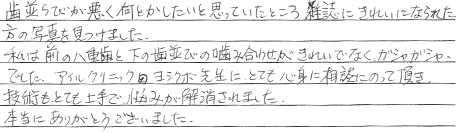 歯並らびが悪く何とかしたいと思っていたところ雑誌にきれいになられた
方の写真を見つけました。
私は前の八重歯と下の歯並びの噛み合わせがきれいでなく、ガシャガシャ
でした。アイルクリニックのヨシクボ先生に、とても心身に相談にのって頂き、
技術もとても上手で、悩みが解消されました。
本当にありがとうございました。